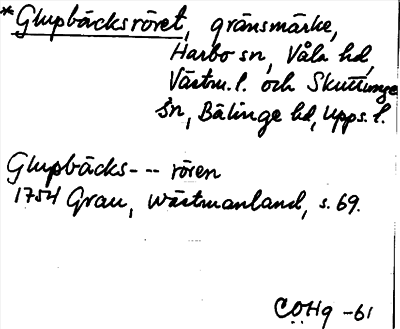 *Glupbäcksröret, gränsmärke,
Harbo sn, Våla hd,
Västm. l. och Skuttunge
sn, Bälinge hd, Upps. l.
Glupbäcks--- rören
1754 Grau, Wästmanland, s. 69.
COHg -61